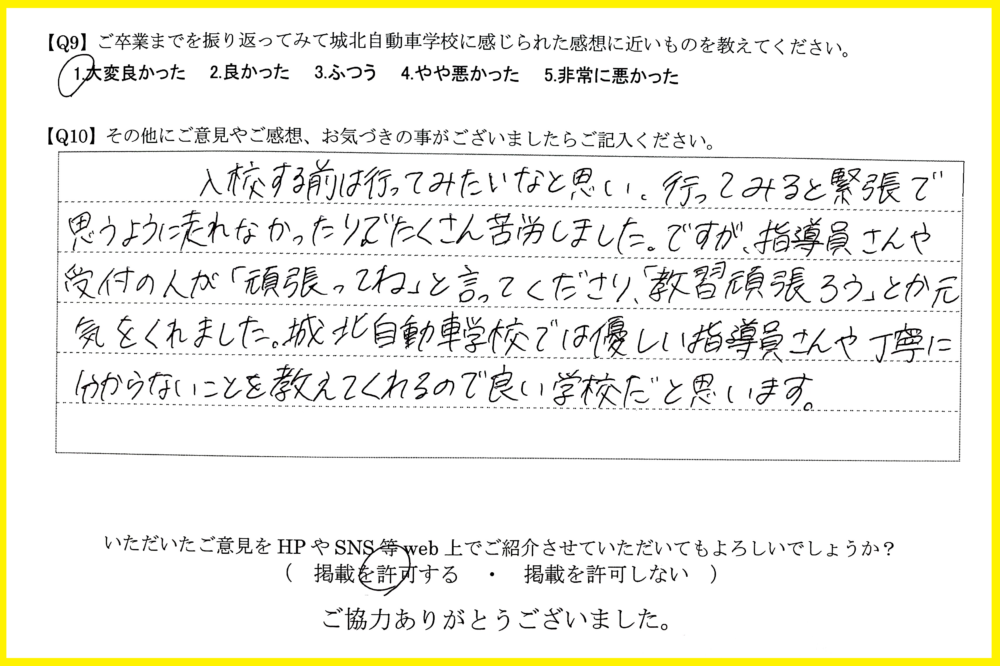 【Q9】ご卒業までを振り返ってみて城北自動車学校に感じられた感想に近いものを教えてください。
1.大変良かった 2.良かった 3.ふつう 4.やや悪かった 5.非常に悪かった
【Q10】その他にご意見やご感想、お気づきの事がございましたらご記入ください。
入校する前は行ってみたいなと思い、行ってみると緊張で
思うように走れなかったりでたくさん苦労しました。ですが、指導員さんや
受付の人が「頑張ってね」と言ってくださり、「教習頑張ろう」とか元
気をくれました。城北自動車学校では優しい指導員さんや丁寧に
分からないことを教えてくれるので良い学校だと思います。
いただいたご意見をHPやSNS等web上でご紹介させていただいてもよろしいでしょうか？
（ 掲載を許可する ・ 掲載を許可しない ）
ご協力ありがとうございました。